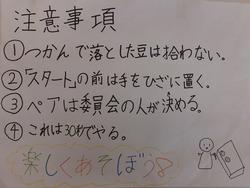 注意事項
①つかんで落とした豆は拾わない。
②「スタート」の前は手をひざに置く。
③ペアは委員会の人が決める。
④これは30秒でやる。
楽しくあそぼう♪